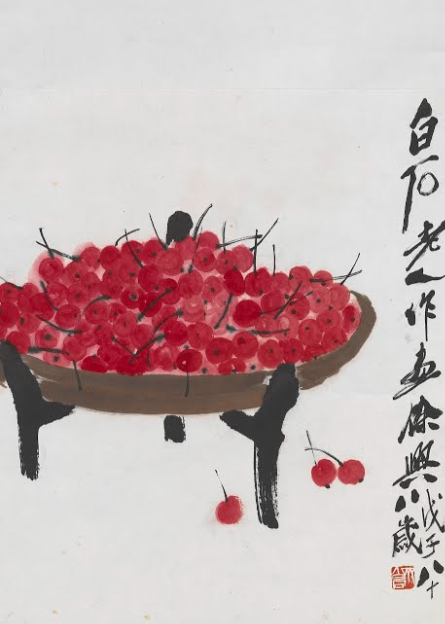 白石老人作畫餘興
戊子八十
八歲